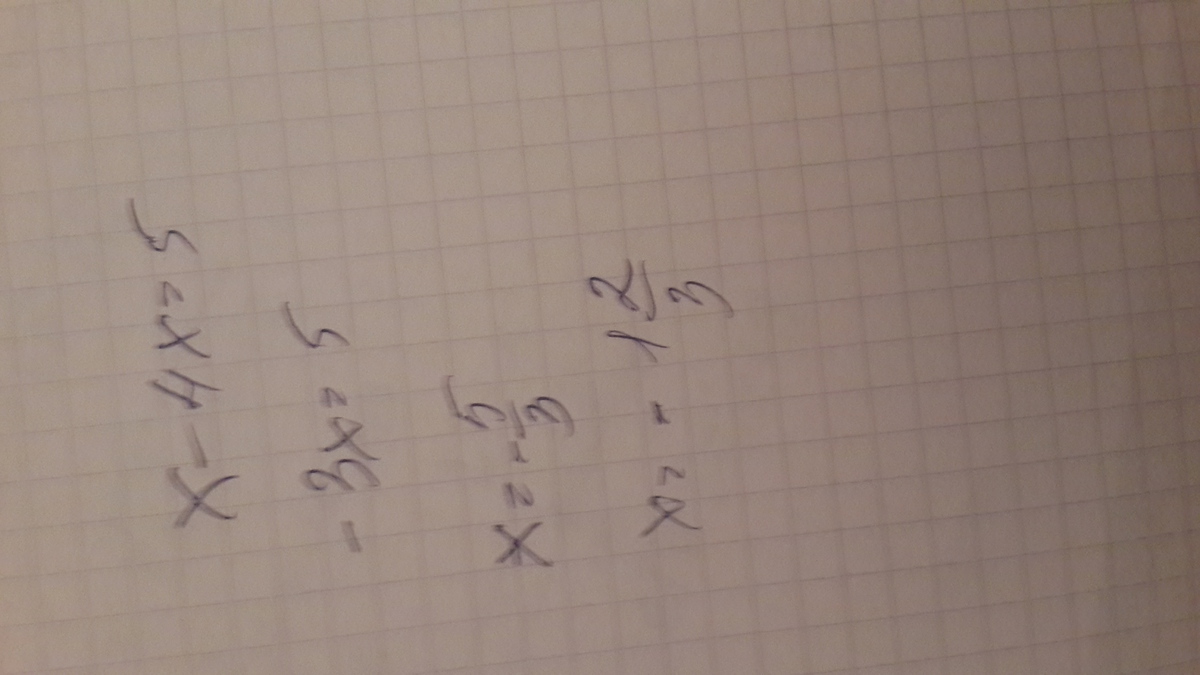 x-4x=5
-3x=5
x=-5/3
x=-1 2/3